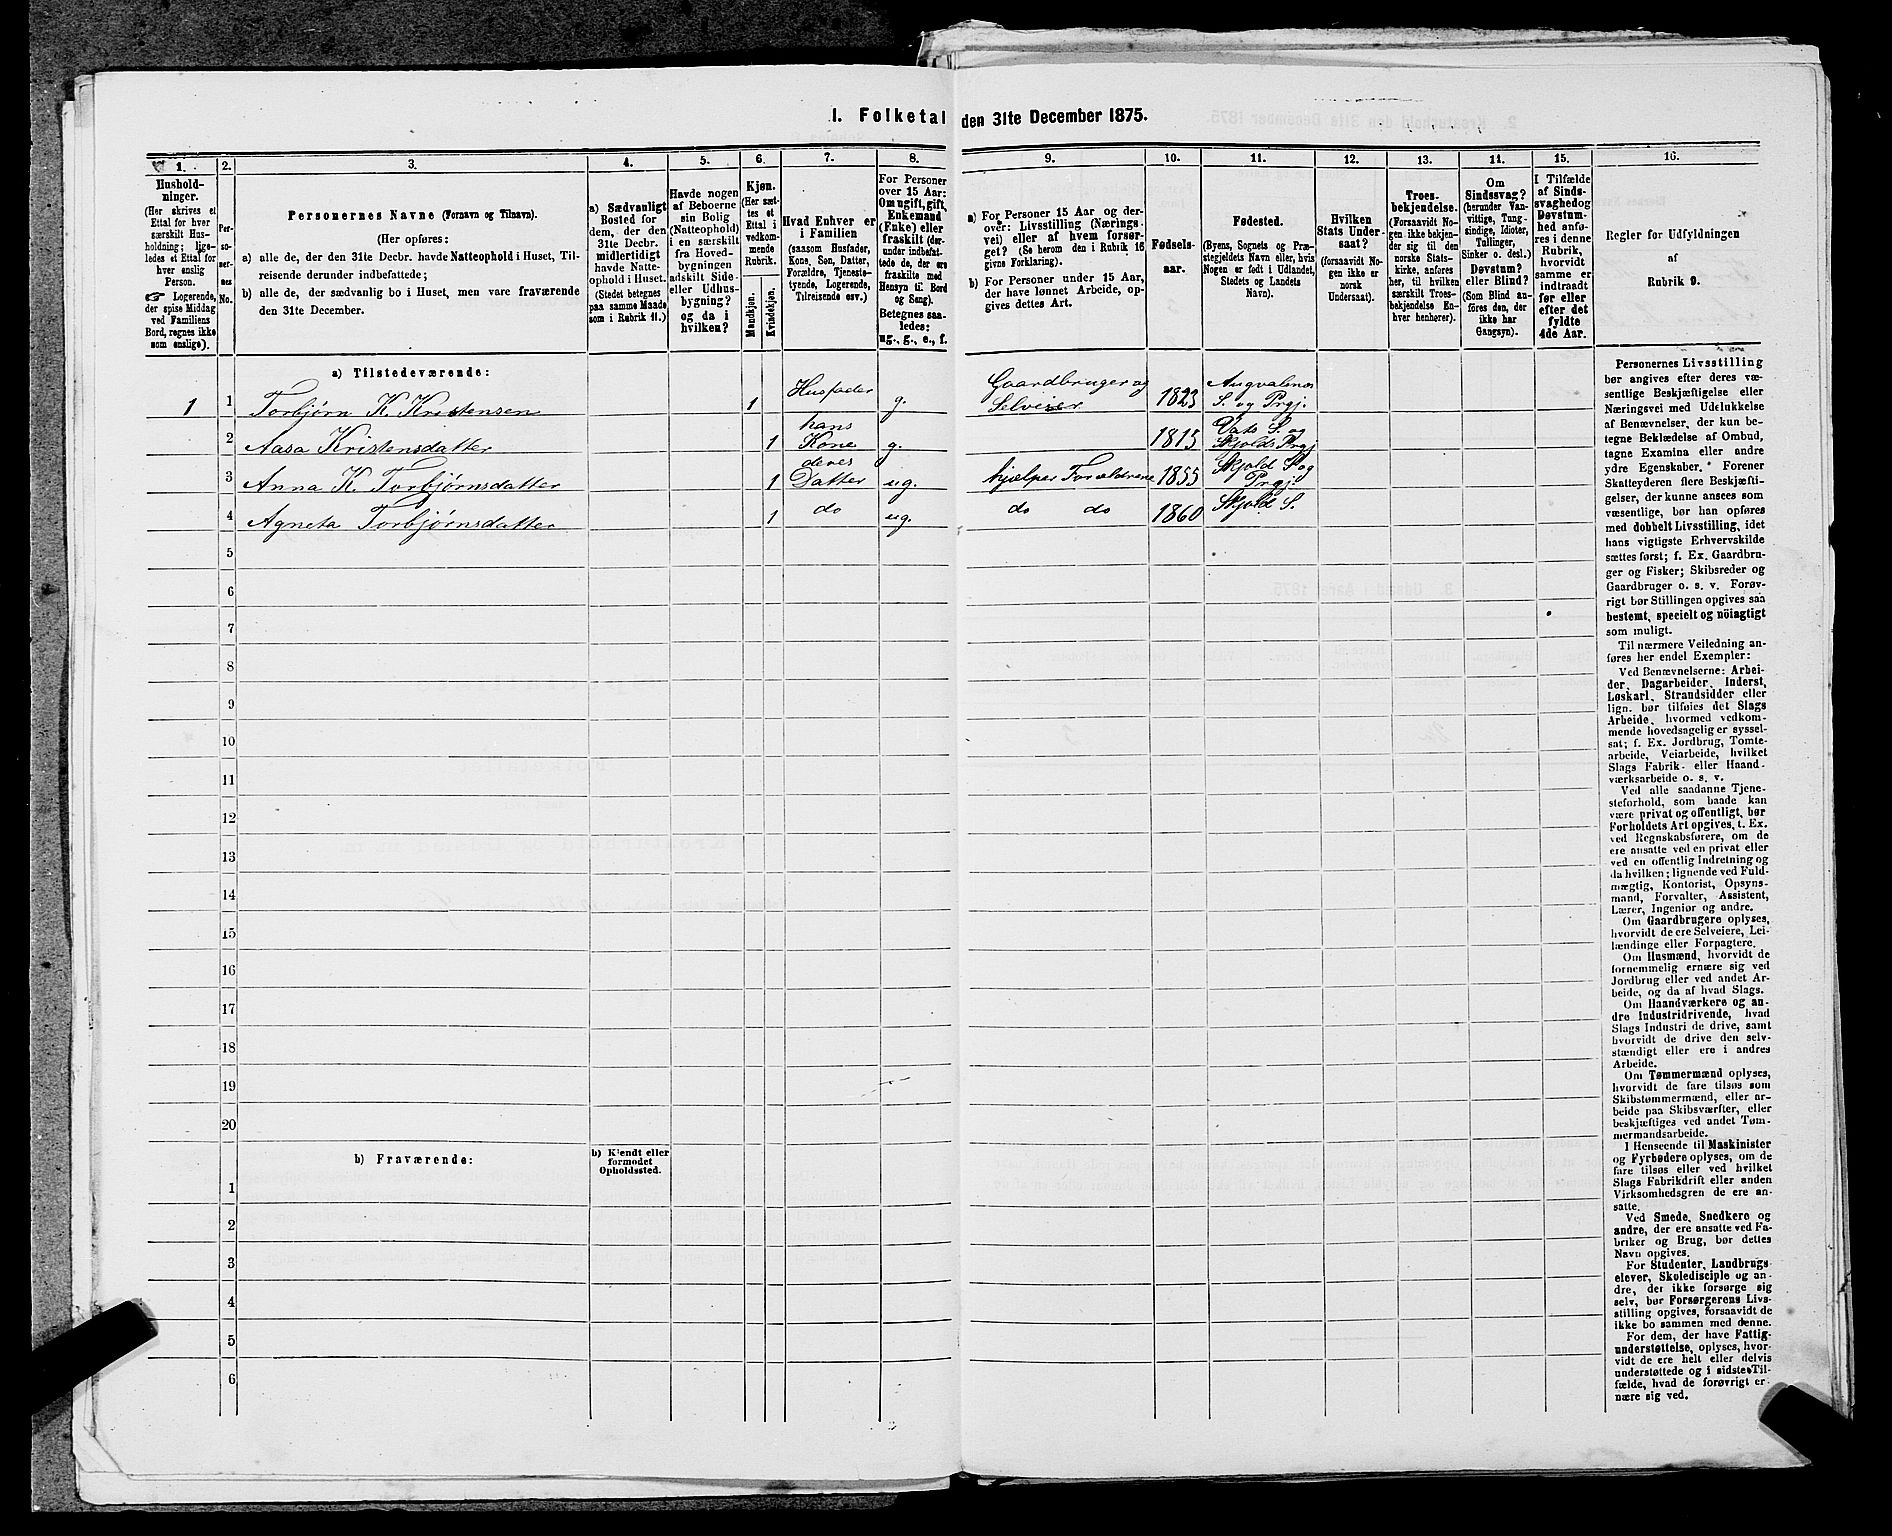 1. Folketal den 31te December 1875.
1.
Hushold-
ninger.
(Her skrives et
Ettal for hver
særskilt Hus-
holdning; lige-
ledes et Ettal for
hver enslig
Person.
Logerende,
der spise Middag
ved Familiens
Bord, regnes ikke
som enslige).
2.
Per-
so-
ner-
nes
No.
3.
Personernes Navne (Fornavn og Tilnavn).
(Her opføres:
a) alle de, der den 31te Decbr. havde Natteophold i Huset, Til-
reisende derunder indbefattede;
b) alle de, der sædvanlig bo i Huset, men vare fraværende
den 31te December.
4.
a) Sædvanligt
Bosted for
dem, der den
31te Decbr.
midlertidigt
havde Natte-
ophold i Huset.
(Stedet betegnes
paa samme Maade
som i Rubrik 11.)
5.
Havde nogen
af Beboerne
sin Bolig
(Natteophold)
i en særskilt
fra Hoved-
bygningen
adskilt Side-
eller Udhus-
bygning?
og da i
hvilken?
6.
Kjøn.
(Her sæt-
tes et
Ettal i
vedkom-
mende
Rubrik.
Mandkjøn.
Kvindekjøn.
7.
Hvad Enhver er
i Familien
(saasom Husfader,
Kone, Søn, Datter,
Forældre, Tjeneste-
tyende, Logerende,
Tilreisende osv.)
8.
For Personer
over 15 Aar:
Om ugift, gift,
Enkemand
(Enke) eller
fraskilt (der-
under indbefat-
tede de, der ere
fraskilte med
Hensyn til Bord
og Seng).
Betegnes saa-
ledes:
ug., g., e., f.
9.
a) For Personer 15 Aar og der-
over: Livsstilling (Nærings-
vei) eller af hvem forsør-
get? (Se herom den i Rubrik 16
givne Forklaring).
b) For Personer under 15 Aar,
der have lønnet Arbeide, op-
gives dettes Art.
10.
Fødsels-
aar.
11.
Fødested.
(Byens, Sognets og Præ-
stegjeldets Navn eller, hvis
Nogen er født i Udlandet,
Stedets og Landets
Navn).
12.
Hvilken
Stats Under-
saat?
(forsaavidt No-
gen ikke er
norsk
Undersaat).
13.
Troes-
bekjendelse.
(Forsaavidt No-
gen ikke bekjen-
der sig til den
norske Stats-
kirke, anføres
her, til hvilken
særskilt Troes-
bekjendelse En-
hver henhører).
14.
Om
Sindssvag?
(herunder Van-
vittige, Tung-
sindige, Idioter,
Tallinger,
Sinker o. desl.)
Døvstum?
eller Blind?
(Som Blind an-
føres den, der
ikke har
Gangsyn).
15.
I Tilfælde
af Sinds-
svaghed og
Døvstum-
hed anfø-
res i denne
Rubrik,
hvorvidt
samme er
indtraadt
før eller
efter det
fyldte
4de Aar.
16.
Regler for Udfyldningen
af
Rubrik 9.
a) Tilstedeværende:
1 1 Torbjørn K. Kristensen 1 Husfader g. Gaardbruger og Selveier 1823 Augvalsnes S. og Prgj.
2 Aasa Kristensdatter 1 hans Kone g. 1815 Vats S. og Skjolds Prgj
3 Anna K. Torbjørnsdatter 1 deres Datter ug. hjælper Forældrene 1855 Skjold S og Prgj.
4 Agneta Torbjørnsdatter 1 do ug. do do 1860 Skjold S.
5
6
7
8
9
10
11
12
13
14
15
16
17
18
19
20
b) Fraværende:
b) Kjendt eller
formodet
Opholdssted.
1
2
3
4
5
6
Personernes Livsstilling
bør angives efter deres væ-
sentlige Beskjæftigelse eller
Næringsvei med Udelukkelse
af Benævnelser, der kun be-
tegne Beklædelse af Ombud,
tagne Examina eller andre
ydre Egenskaber. Forener
Skatteyderen flere Beskjæfti-
gelser, der kunne ansees som
væsentlige, bør han opføres
med dobbelt Livsstilling, idet
hans vigtigste Erhvervskilde
sættes først; f. Ex. Gaardbru-
ger og Fisker; Skibsreder og
Gaardbruger o. s. v. Forøv-
rigt bør Stillingen opgives saa
bestemt, specielt og nöiagtigt
som muligt.
Til nærmere Veiledning an-
føres her endel Exempler:
Ved Benævnelserne: Arbei-
der, Dagarbeider, Inderst,
Løskarl, Strandsidder eller
lign. bør tilføies det Slags
Arbeide, hvormed vedkom-
mende hovedsagelig er syssel-
sat; f. Ex. Jordbrug, Tomte-
arbeide, Veiarbeide, hvilket
Slags Fabrik- eller Haand-
værksarbeide o. s. v.
Ved alle saadanne Tjene-
steforhold, som baade kan
være privat og offentligt, bør
Forholdets Art opgives, t. Ex.
ved Regnskabsførere, om de
ere ansatte ved en privat eller
ved en offentlig Indretning og
da hvilken; lignende ved Fuld-
mægtig, Kontorist, Opsyns-
mand, Forvalter, Assistent,
Lærer, Ingeniør og andre.
Om Gaardbrugere oplyses,
hvorvidt de ere Selveiere, Lei-
lændinge eller Forpagtere.
Om Husmænd, hvorvidt de
fornemmelig ernære sig ved
Jordbrug eller ved andet Ar-
beide, og da af hvad Slags.
Om Haandværkere og an-
dre Industridrivende, hvad
Slags Industri de drive, samt
hvorvidt de drive den selv-
stændigt eller ere i andres
Arbeide.
Om Tømmermænd oplyses,
hvorvidt de fare tilsøs som
Skibstømmermænd, eller ar-
beide paa Skibsværfter, eller
beskjæftiges ved andet Tøm-
mermandsarbeide.
I Henseende til Maskinister
og Fyrbødere oplyses, om de
fare tilsøs eller ved hvilket
Slags Fabrikdrift eller anden
Virksomhedsgren de ere an-
satte.
Ved Smede, Snedkere og
andre, der ere ansatte ved Fa-
briker og Brug, bør dettes
Navn opgives.
For Studenter, Landbrugs-
elever, Skoledisciple og an-
dre, der ikke forsørge sig
selv, bør Forsørgerens Livs-
stilling opgives, forsaavidt de
ikke bo sammen med denne.
For dem, der have Fattig-
understøttelse, oplyses, hvor-
vidt de ere helt eller delvis
understøttede og i sidste Til-
fælde, hvad de forøvrigt er-
nære sig ved.